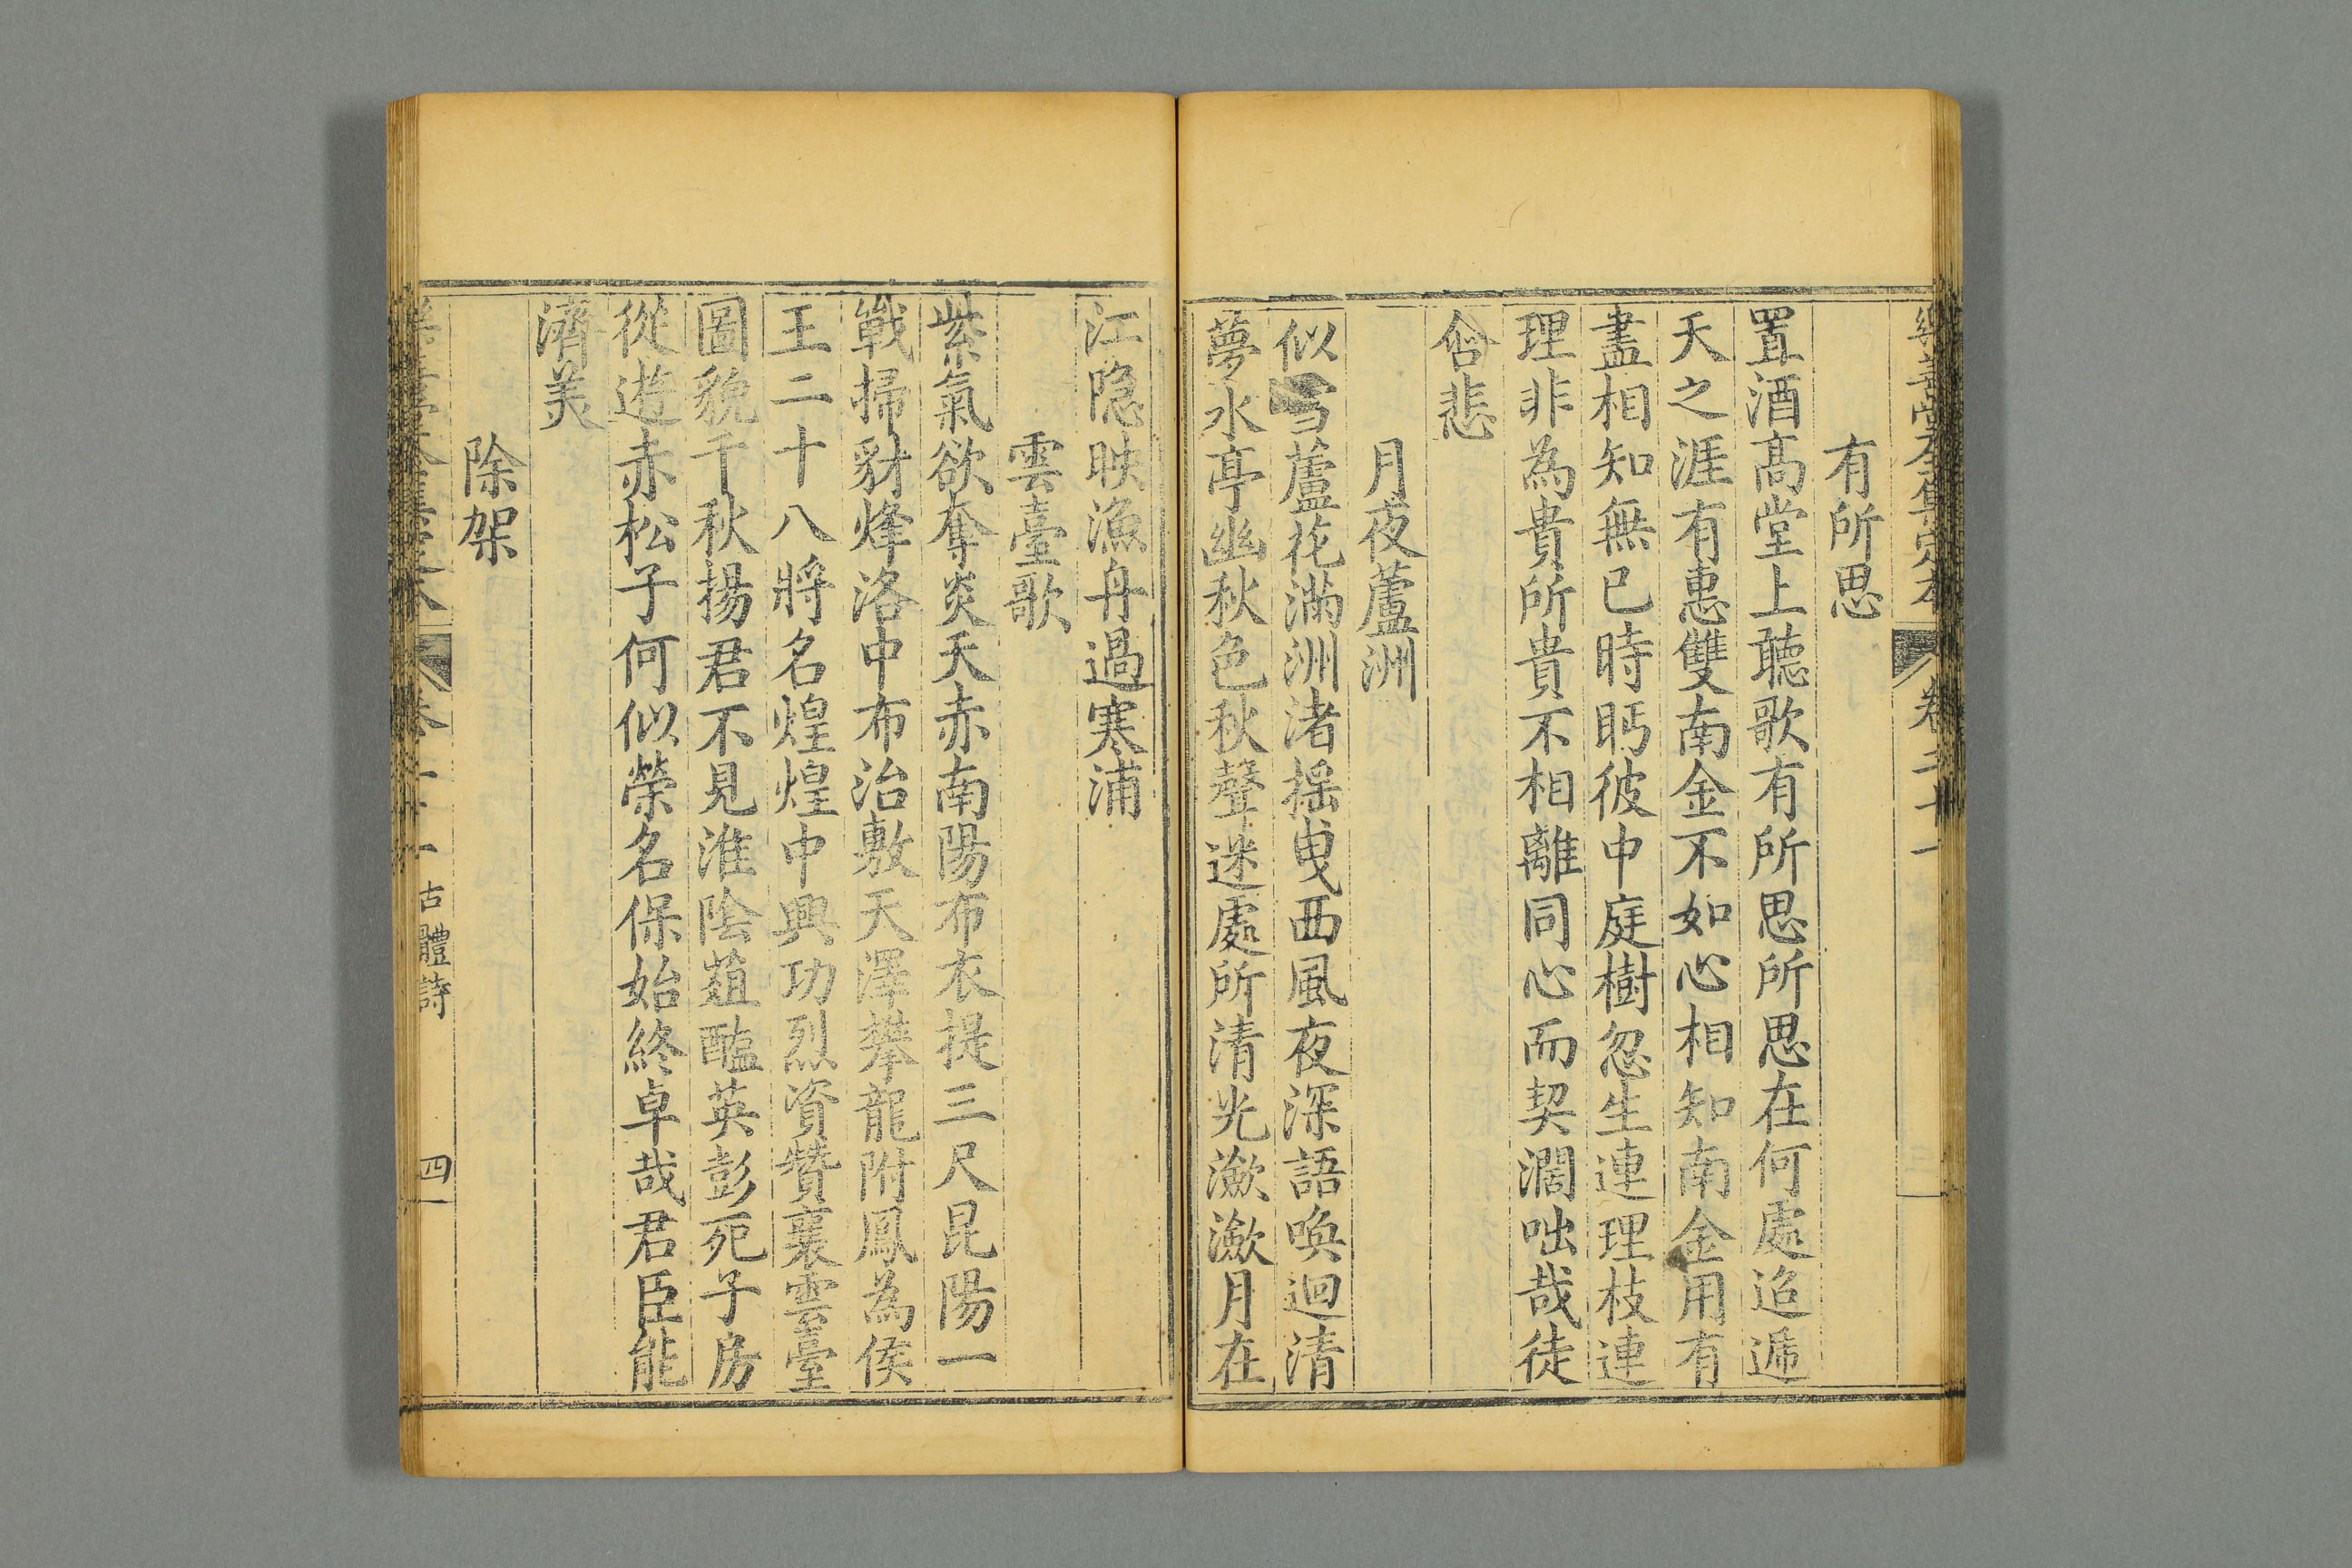 樂善堂全集定本 卷二十一 三
有所思
置酒高堂上聽歌有所思所思在何處迢遞
天之涯有惠雙南金不如心相知南金用有
盡相知無已時眄彼中庭樹忽生連理枝連
理非為貴所貴不相離同心而契濶咄哉徒
含悲
月夜蘆洲
似雪蘆花滿洲渚搖曳西風夜深語喚迴清
夢水亭幽秋色秋聲迷處所清光瀲瀲月在
江隐映漁舟過寒浦
雲臺歌
紫氣欲奪炎天赤南陽布衣提三尺昆陽一
戰掃豺烽洛中布治敷天澤攀龍附鳳為侯
王二十八將名煌煌中興功烈資贊襄雲臺
圖貌千秋揚君不見淮陰葅醢英彭死子房
從遊赤松子何似榮名保始終卓哉君臣能
濟美
除架
樂善堂全集定本 卷二十一 古體詩 四